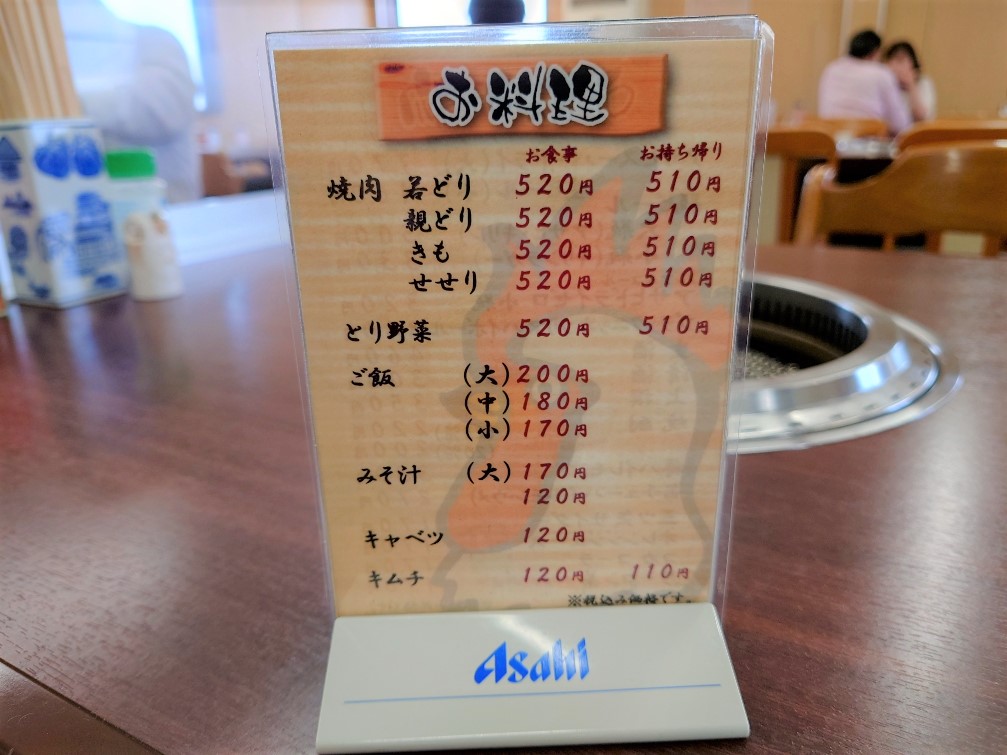 お料理
お食事 お持ち帰り
焼肉 若どり 520円 510円
親どり 520円 510円
きも 520円 510円
せせり 520円 510円
とり野菜 520円 510円
ご飯 (大) 200円
(中) 180円
(小) 170円
みそ汁 (大) 170円
120円
キャベツ 120円
キムチ 120円 110円
※税込み価格です。
Asahi